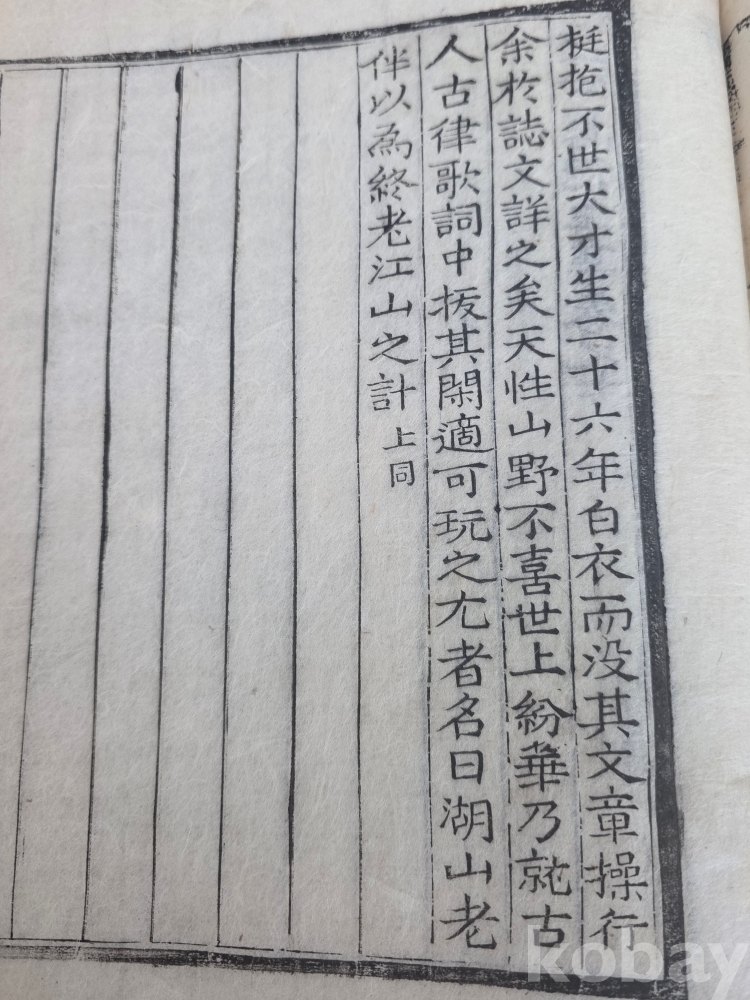 挺抱不世大才生二十六年白衣而没其文章操行
余於誌文詳之矣天性山野不喜世上紛華乃就古
人古律歌詞中拔其閑適可玩之尤者名曰湖山老
伴以為終老江山之計 上同
kobay